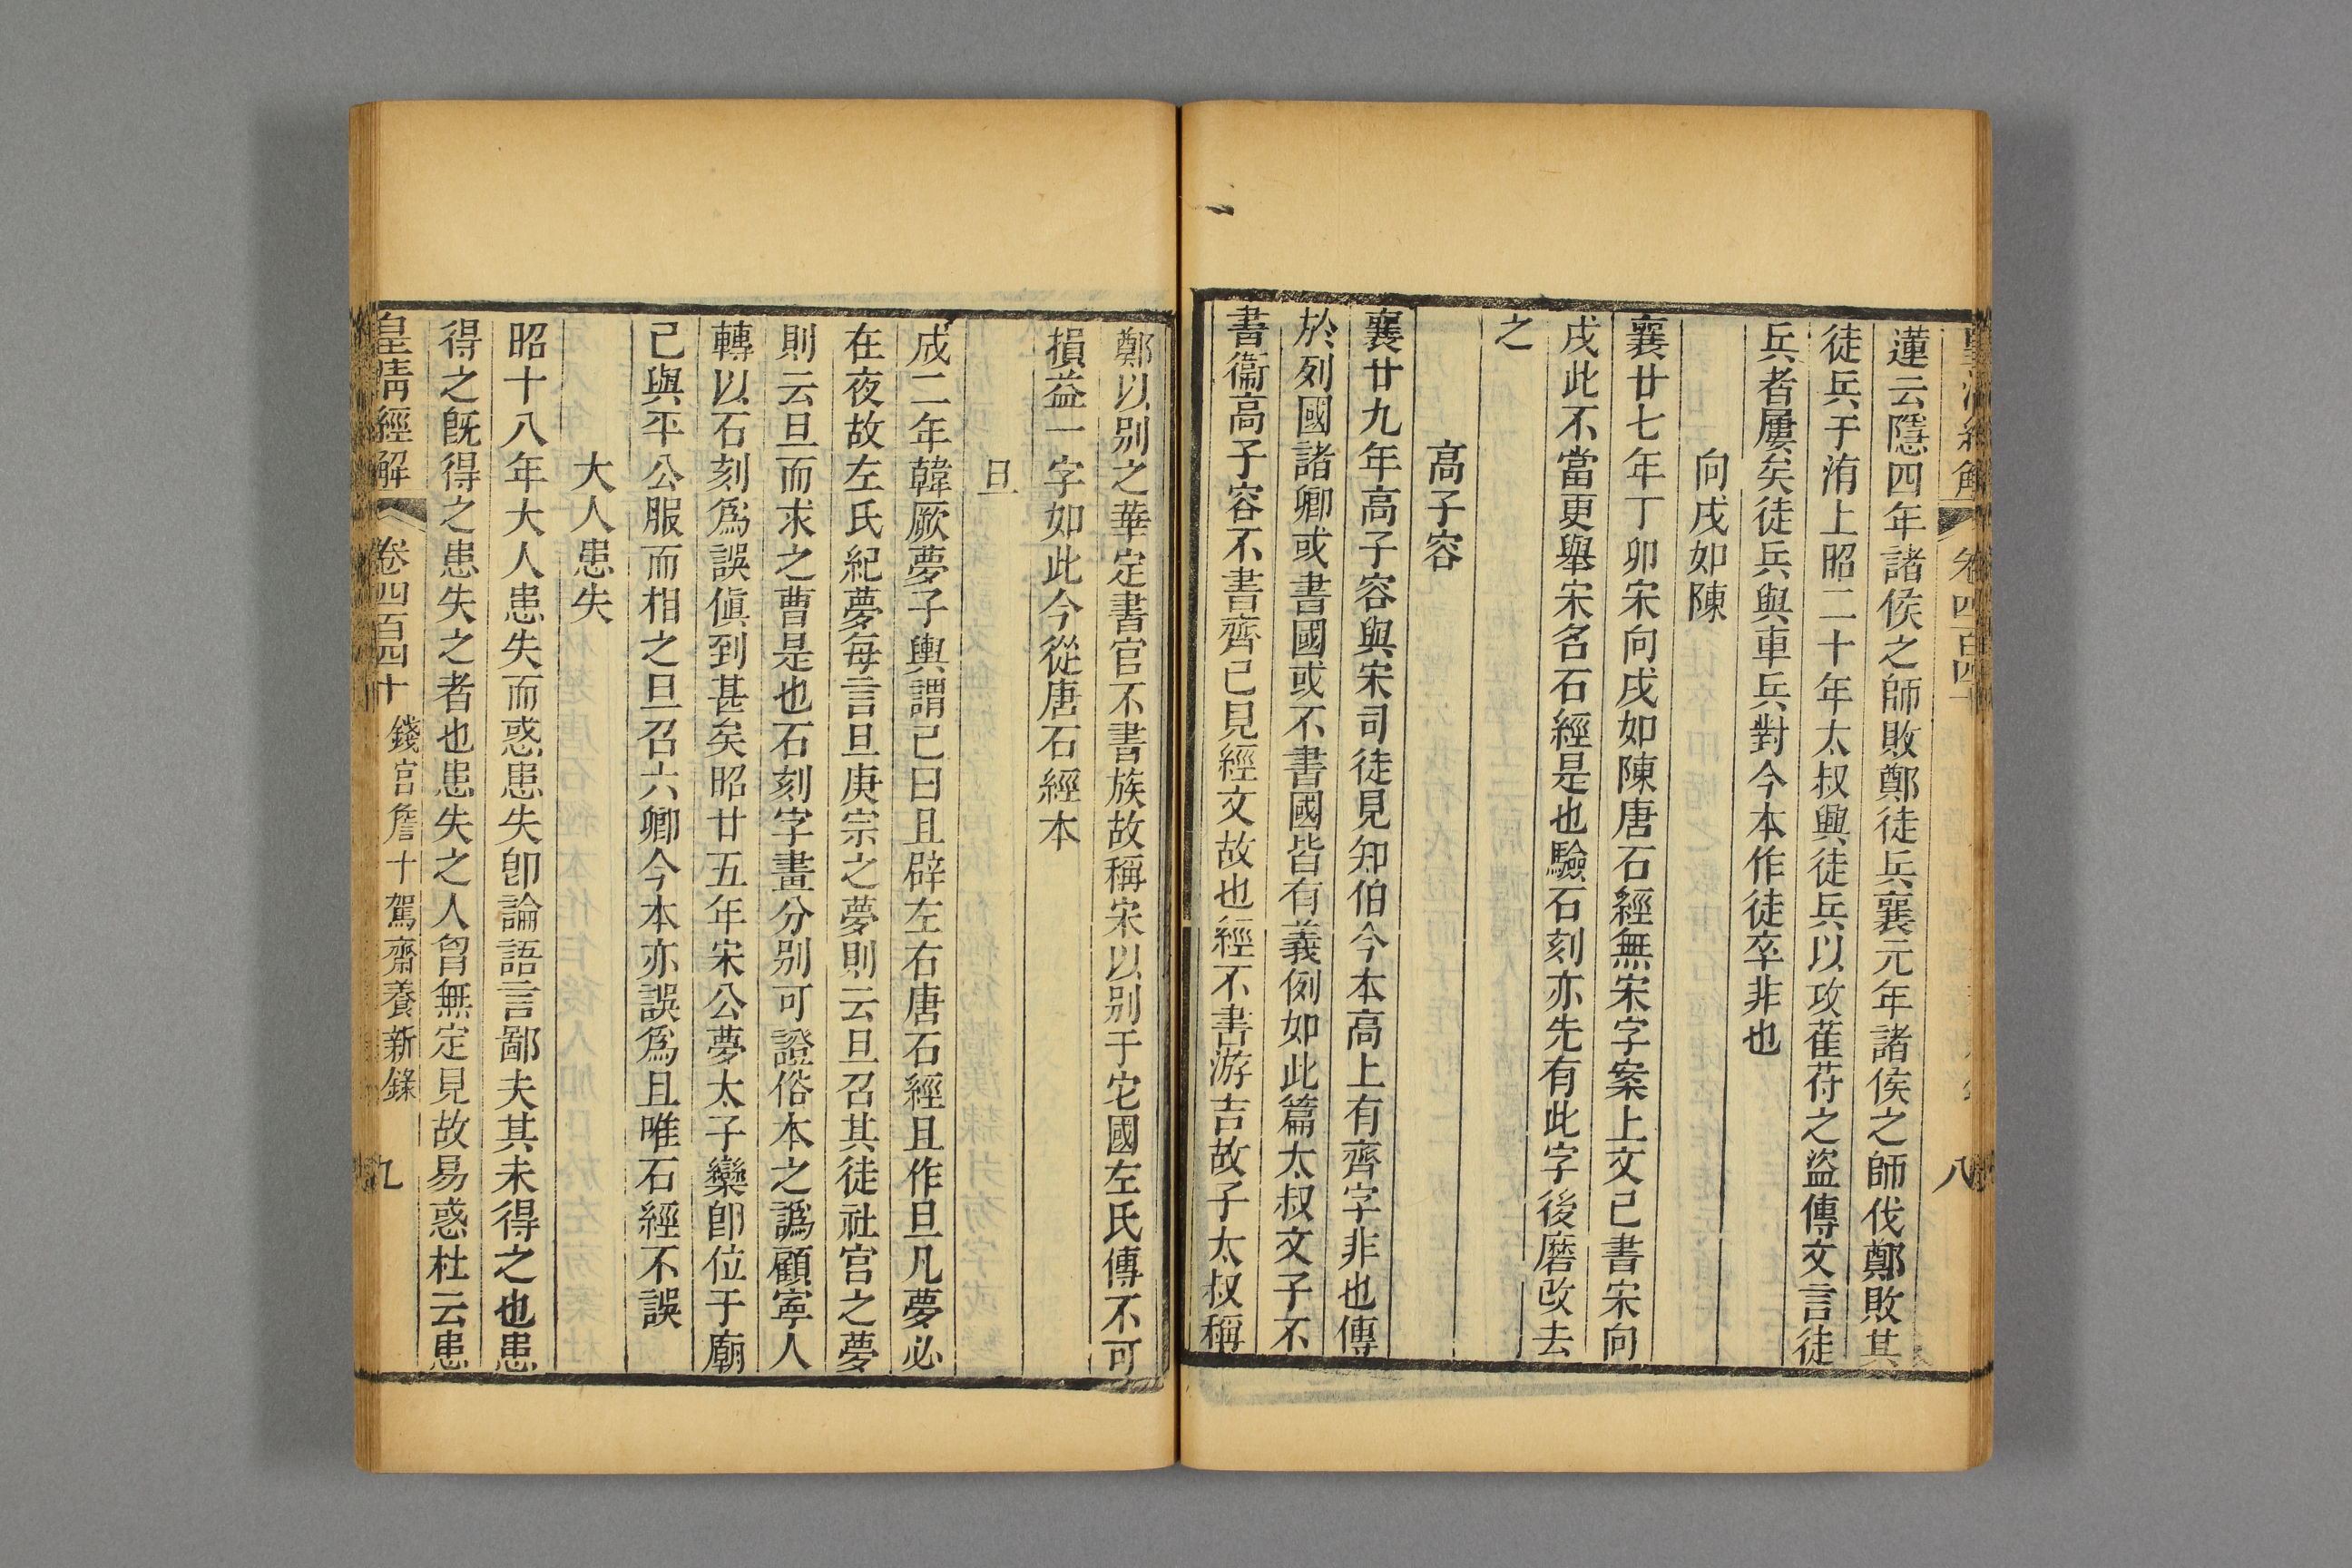 皇清經解 卷四百四十 八
蓮云隱四年諸侯之師敗鄭徒兵襄元年諸侯之師伐鄭敗其
徒兵于洧上昭二十年太叔興徒兵以攻萑苻之盜傳文言徒
兵者屢矣徒兵與車兵對今本作徒卒非也
向戌如陳
襄廿七年丁卯宋向戌如陳唐石經無宋字案上文已書宋向
戌此不當更舉宋名石經是也驗石刻亦先有此字後磨改去
之
高子容
襄廿九年高子容與宋司徒見知伯今本高上有齊字非也傳
於列國諸卿或書國或不書國皆有義例如此篇太叔文子不
書衞高子容不書齊已見經文故也經不書游吉故子太叔稱
鄭以别之華定書官不書族故稱宋以别于宅國左氏傳不可
損益一字如此今從唐石經本
旦
成二年韓厥夢子輿謂己曰且辟左右唐石經且作旦凡夢必
在夜故左氏紀夢每言旦庚宗之夢則云旦召其徒社宫之夢
則云旦而求之曹是也石刻字畫分别可證俗本之譌顧寧人
轉以石刻爲誤傎到甚矣昭廿五年宋公夢太子欒卽位于廟
己與平公服而相之旦召六卿今本亦誤爲且唯石經不誤
大人患失
昭十八年大人患失而惑患失卽論語言鄙夫其未得之也患
得之旣得之患失之者也患失之人胷無定見故易惑杜云患
皇清經解 卷四百四十 錢宫詹十駕齋養新錄 九